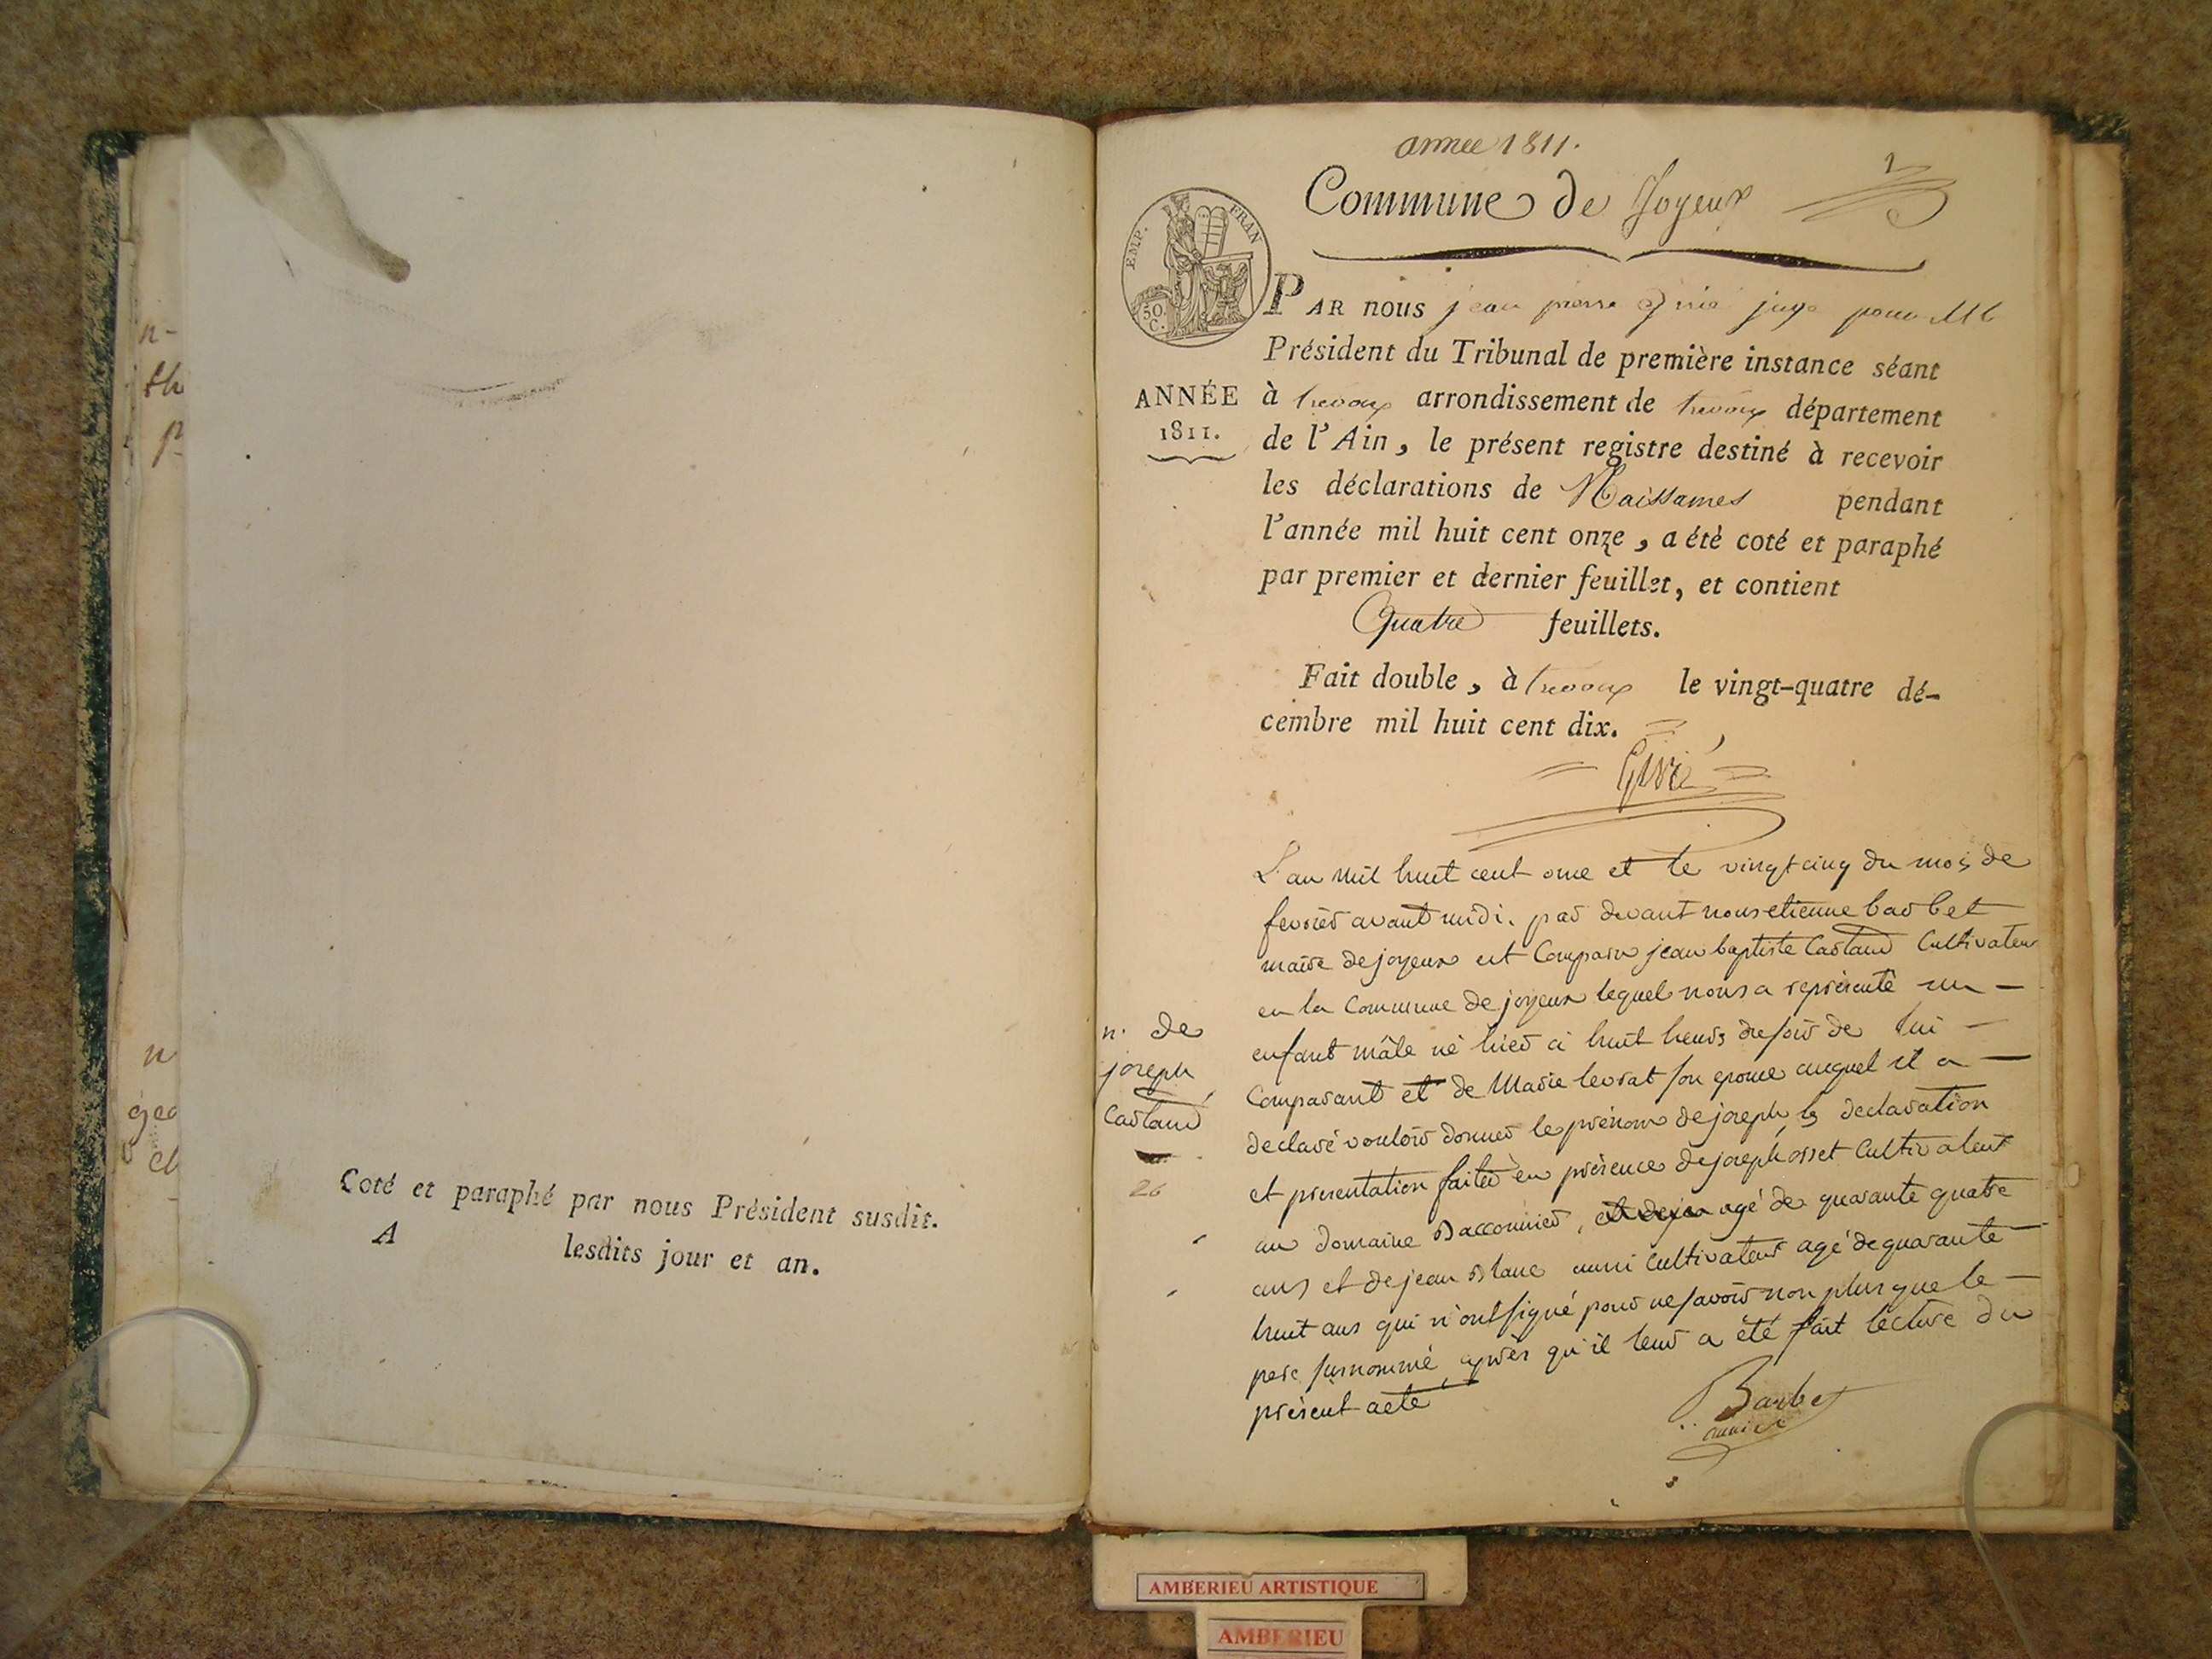 n-
th
p-
n
gea
cl
Coté et paraphé par nous Président susdit.
A lesdits jour et an.
annee 1811.
Commune de Joyeux
EMP. FRAN
50. C.
PAR nous jean pierre juge pour M
Président du Tribunal de première instance séant
ANNÉE
1811.
à trevoux arrondissement de trevoux département
de l'Ain, le présent registre destiné à recevoir
les déclarations de Naissances pendant
l'année mil huit cent onze, a été coté et paraphé
par premier et dernier feuillet, et contient
Quatre feuillets.
Fait double, à trevoux le vingt-quatre dé-
cembre mil huit cent dix.
L'an mil huit cent onze et le vingt cinq du mois de
fevrier avant midi. par devant nous etienne barbet
maire de joyeux est comparu jean baptiste Carland Cultivateur
en la Commune de joyeux lequel nous a représenté un -
n. de
joseph
Carland
26
enfant mâle né hier à huit heurs du soir de lui -
Comparant et de Marie levrat son epouse auquel il a -
declaré vouloir donner le prénom de joseph, ls declaration
et presentation faites en présence de joseph osset Cultivateur
au domaine Baconnier, agé de quarante quatre
ans et de jean Blanc aussi Cultivateur agé de quarante
huit ans qui n'ont signé pour ne savoir non plus que le -
pere susnommé, après qu'il leur a été fait lecture du
présent acte
Barbet
maire
AMBERIEU ARTISTIQUE
AMBERIEU